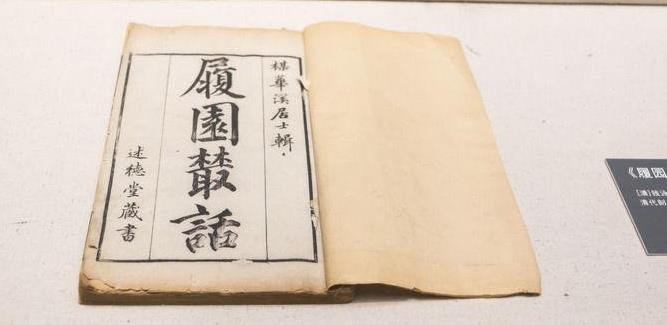 楳華溪居士輯
履園叢話
述德堂藏書
《履园
[清]钱泳
清代刻